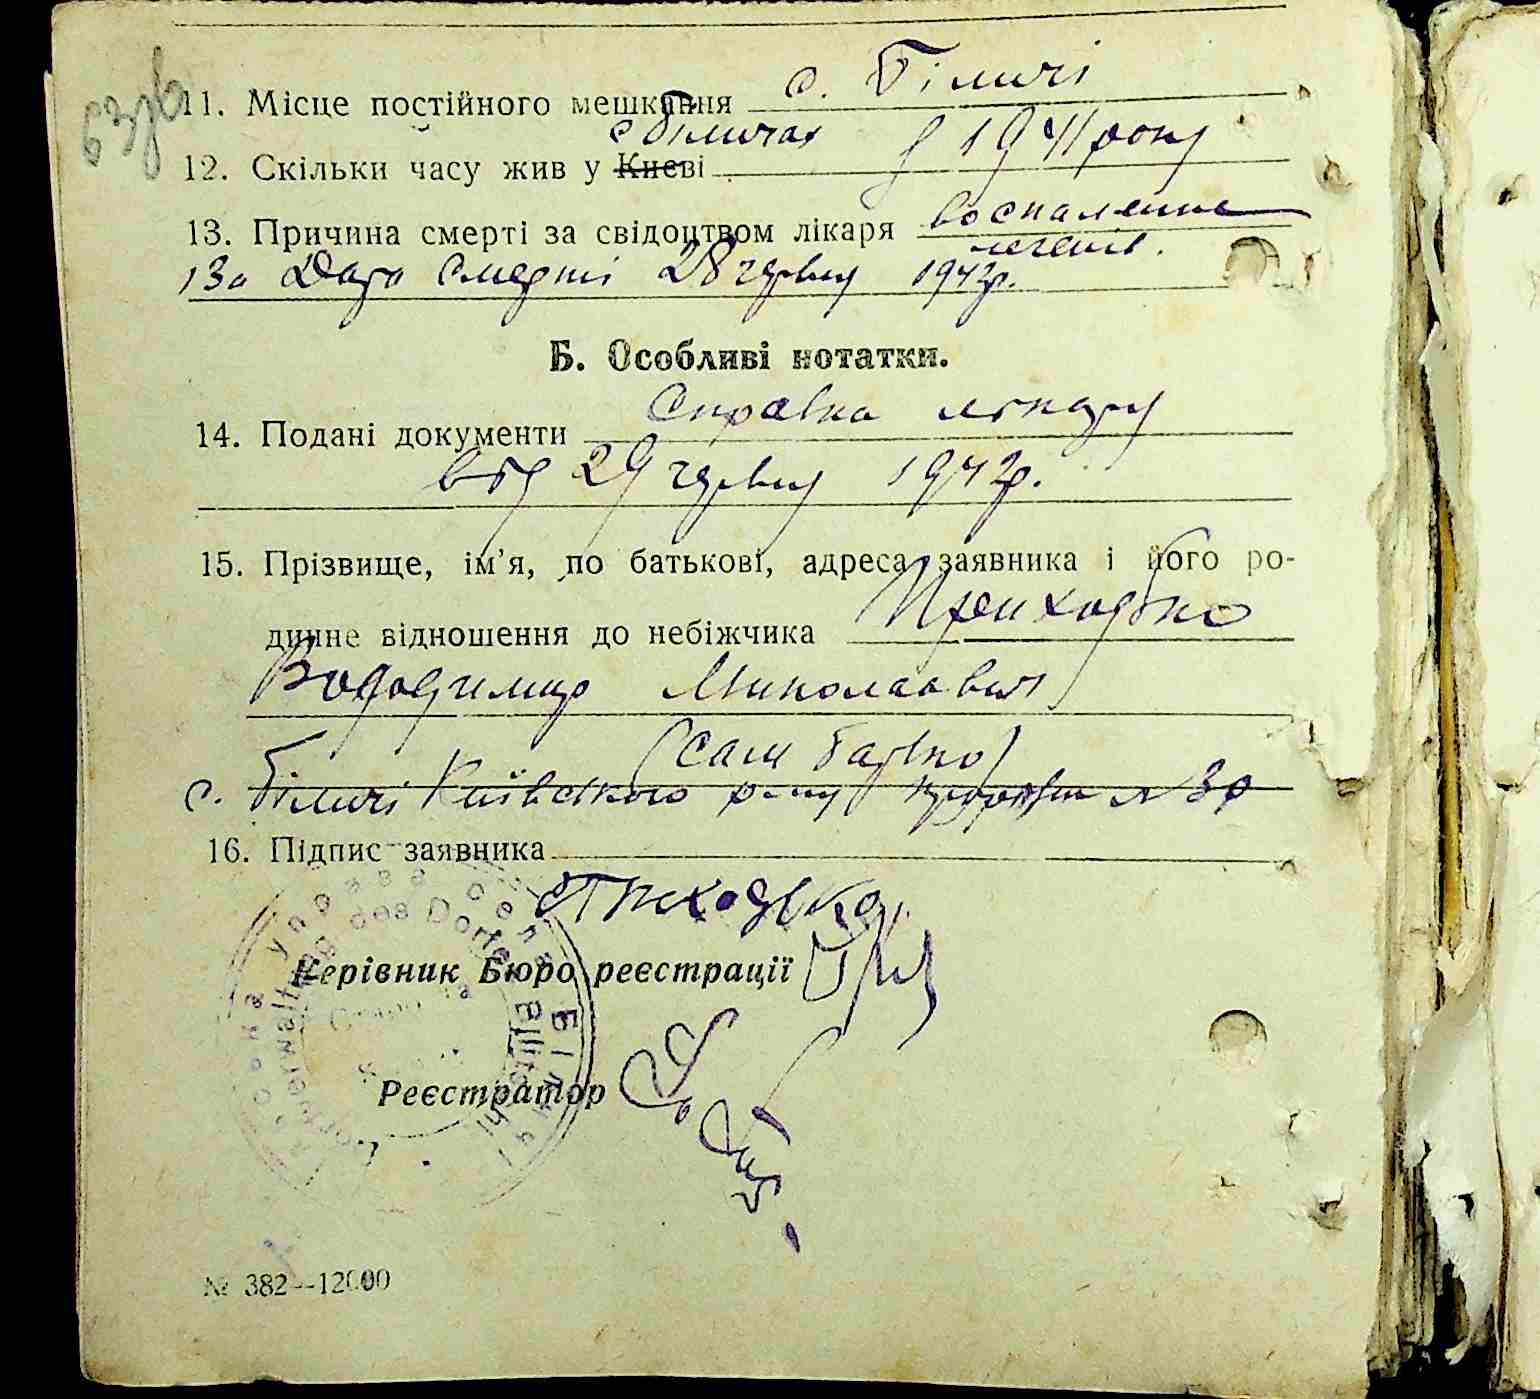 63зв
11. Місце постійного мешкання с. Біличі
с Біличах з 1941 року
12. Скільки часу жив у Києві
13. Причина смерті за свідоцтвом лікаря воспаление
легенів.
13а Дата смерті 28 червня 1942р.
Б. Особливі нотатки.
14. Подані документи Справка лікаря
від 29 червня 1942р.
15. Прізвище, ім'я, по батькові, адреса заявника і його ро-
динне відношення до небіжчика Приходько
Володимир Миколаевич
(сам батько)
с. Біличі Київського р-ну № 30
16. Підпис заявника
Приходько
Керівник Бюро реєстрації
Реєстратор
№ 382—12000